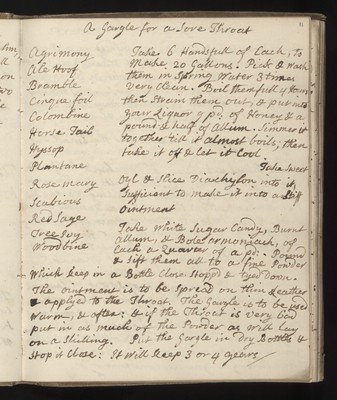 A Gargle for a Sore Throat
Agrimony
Ale Hoof
Bramble
Cinque foil
Colombine
Horse Tail
Hyssop
Plantane
Rosemary
Scabious
Red Sage
Tree Ivy
Woodbine
Take 6 Handsfull of Each, to
Make 20 Gallons: Pick & Wash
them in Spring Water 3 times
Very Clean. Boil them full 4 Hours
then Strain them out, & put into
Your Liquor 9 pd: of Honey & a
pound & half of Allum. Simmer it
together till it almost boils, then
take it off & let it Cool.
Take Sweet
Oil & Slice Diachylon into it,
Sufficient to make it into a Stiff
Ointment
Take White Sugar Candy, Burnt
Allum, & Bole Armoniack, of
Each a Quarter of a pd: Pound
& Sift them all to a fine Powder
Which keep in a Bottle Close Stop'd & tyed down.
The ointment is to be Spread on thin Leather
& applyed to the Throat. The Gargle is to be used
Warm, & after: & if the Throat is very bad
put in as much of the Powder as will lay
on a Shilling. Put the Gargle in Dry Bottles &
Stop it Close: It Will keep 3 or 4 years